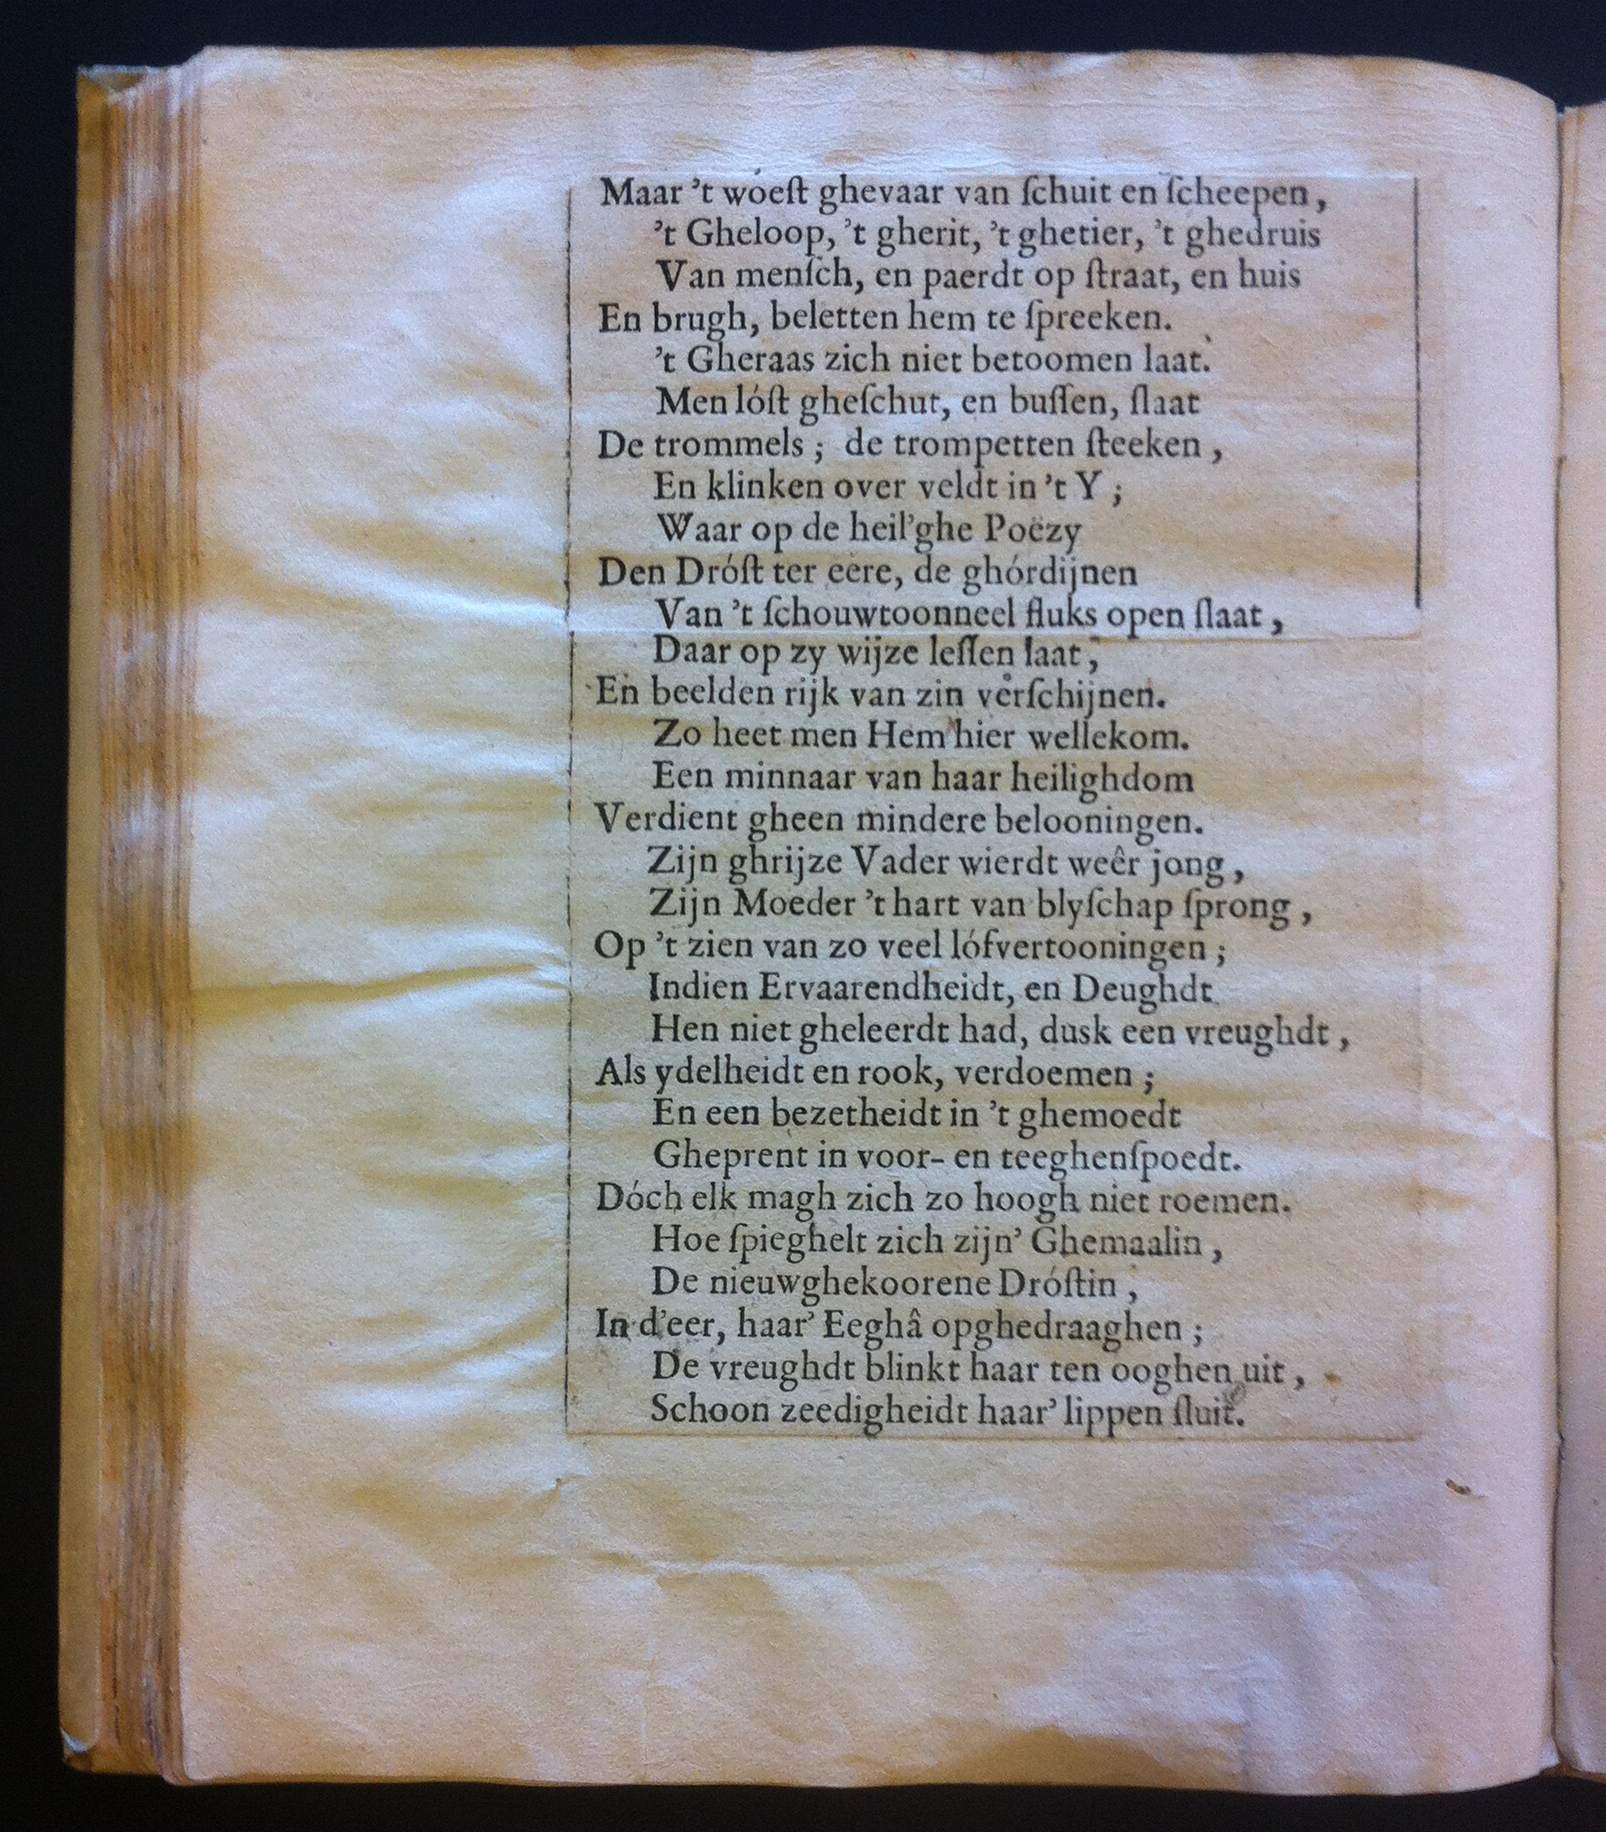 Maar 't wóeſt ghevaar van ſchuit en ſcheepen,
't Gheloop, 't gherit, 't ghetier, 't ghedruis
Van menſch, en paerdt op ſtraat, en huis
En brugh, beletten hem te ſpreeken.
't Gheraas zich niet betoomen laat.
Men lóſt gheſchut, en buſſen, ſlaat
De trommels; de trompetten ſteeken,
En klinken over veldt in 't Y;
Waar op de heil'ghe Poëzy
Den Dróſt ter eere, de ghórdijnen
Van 't ſchouwtoonneel fluks open ſlaat,
Daar op zy wijze leſſen laat,
En beelden rijk van zin verſchijnen.
Zo heet men Hem hier wellekom.
Een minnaar van haar heilighdom
Verdient gheen mindere belooningen.
Zijn ghrijze Vader wierdt weêr jong,
Zijn Moeder 't hart van blyſchap ſprong,
Op 't zien van zo veel lófvertooningen;
Indien Ervaarendheidt, en Deughdt
Hen niet gheleerdt had, dusk een vreughdt,
Als ydelheidt en rook, verdoemen;
En een bezetheidt in 't ghemoedt
Gheprent in voor- en teeghenſpoedt.
Dóch elk magh zich zo hoogh niet roemen.
Hoe ſpieghelt zich zijn' Ghemaalin,
De nieuwghekoorene Dróſtin,
In d'eer, haar' Eeghâ opghedraaghen;
De vreughdt blinkt haar ten ooghen uit,
Schoon zeedigheidt haar' lippen ſluit.